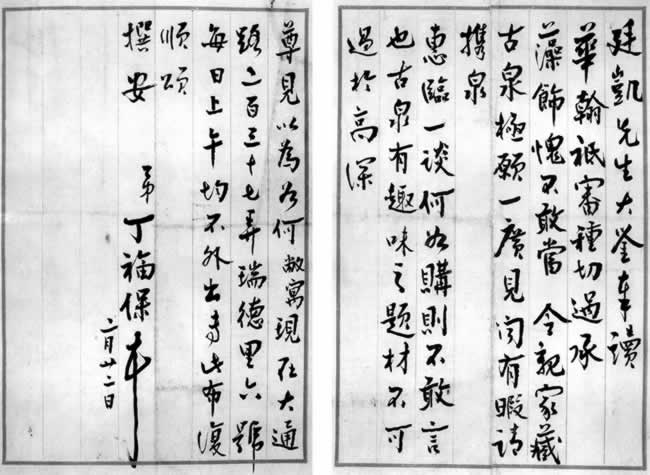 廷凱先生大鑒奉讀
華翰祇審種切過承
藻飾愧不敢當 令親家藏
古泉極願一廣見闻有暇請
携泉
惠臨一談何如購則不敢言
也古泉有趣味之題材不可
過於高深
尊見以為如何敝寓現在大通
路二百三十七弄瑞德里六號
每日上午均不外出專此布復
順頌
撰安
弟丁福保
二月廿二日